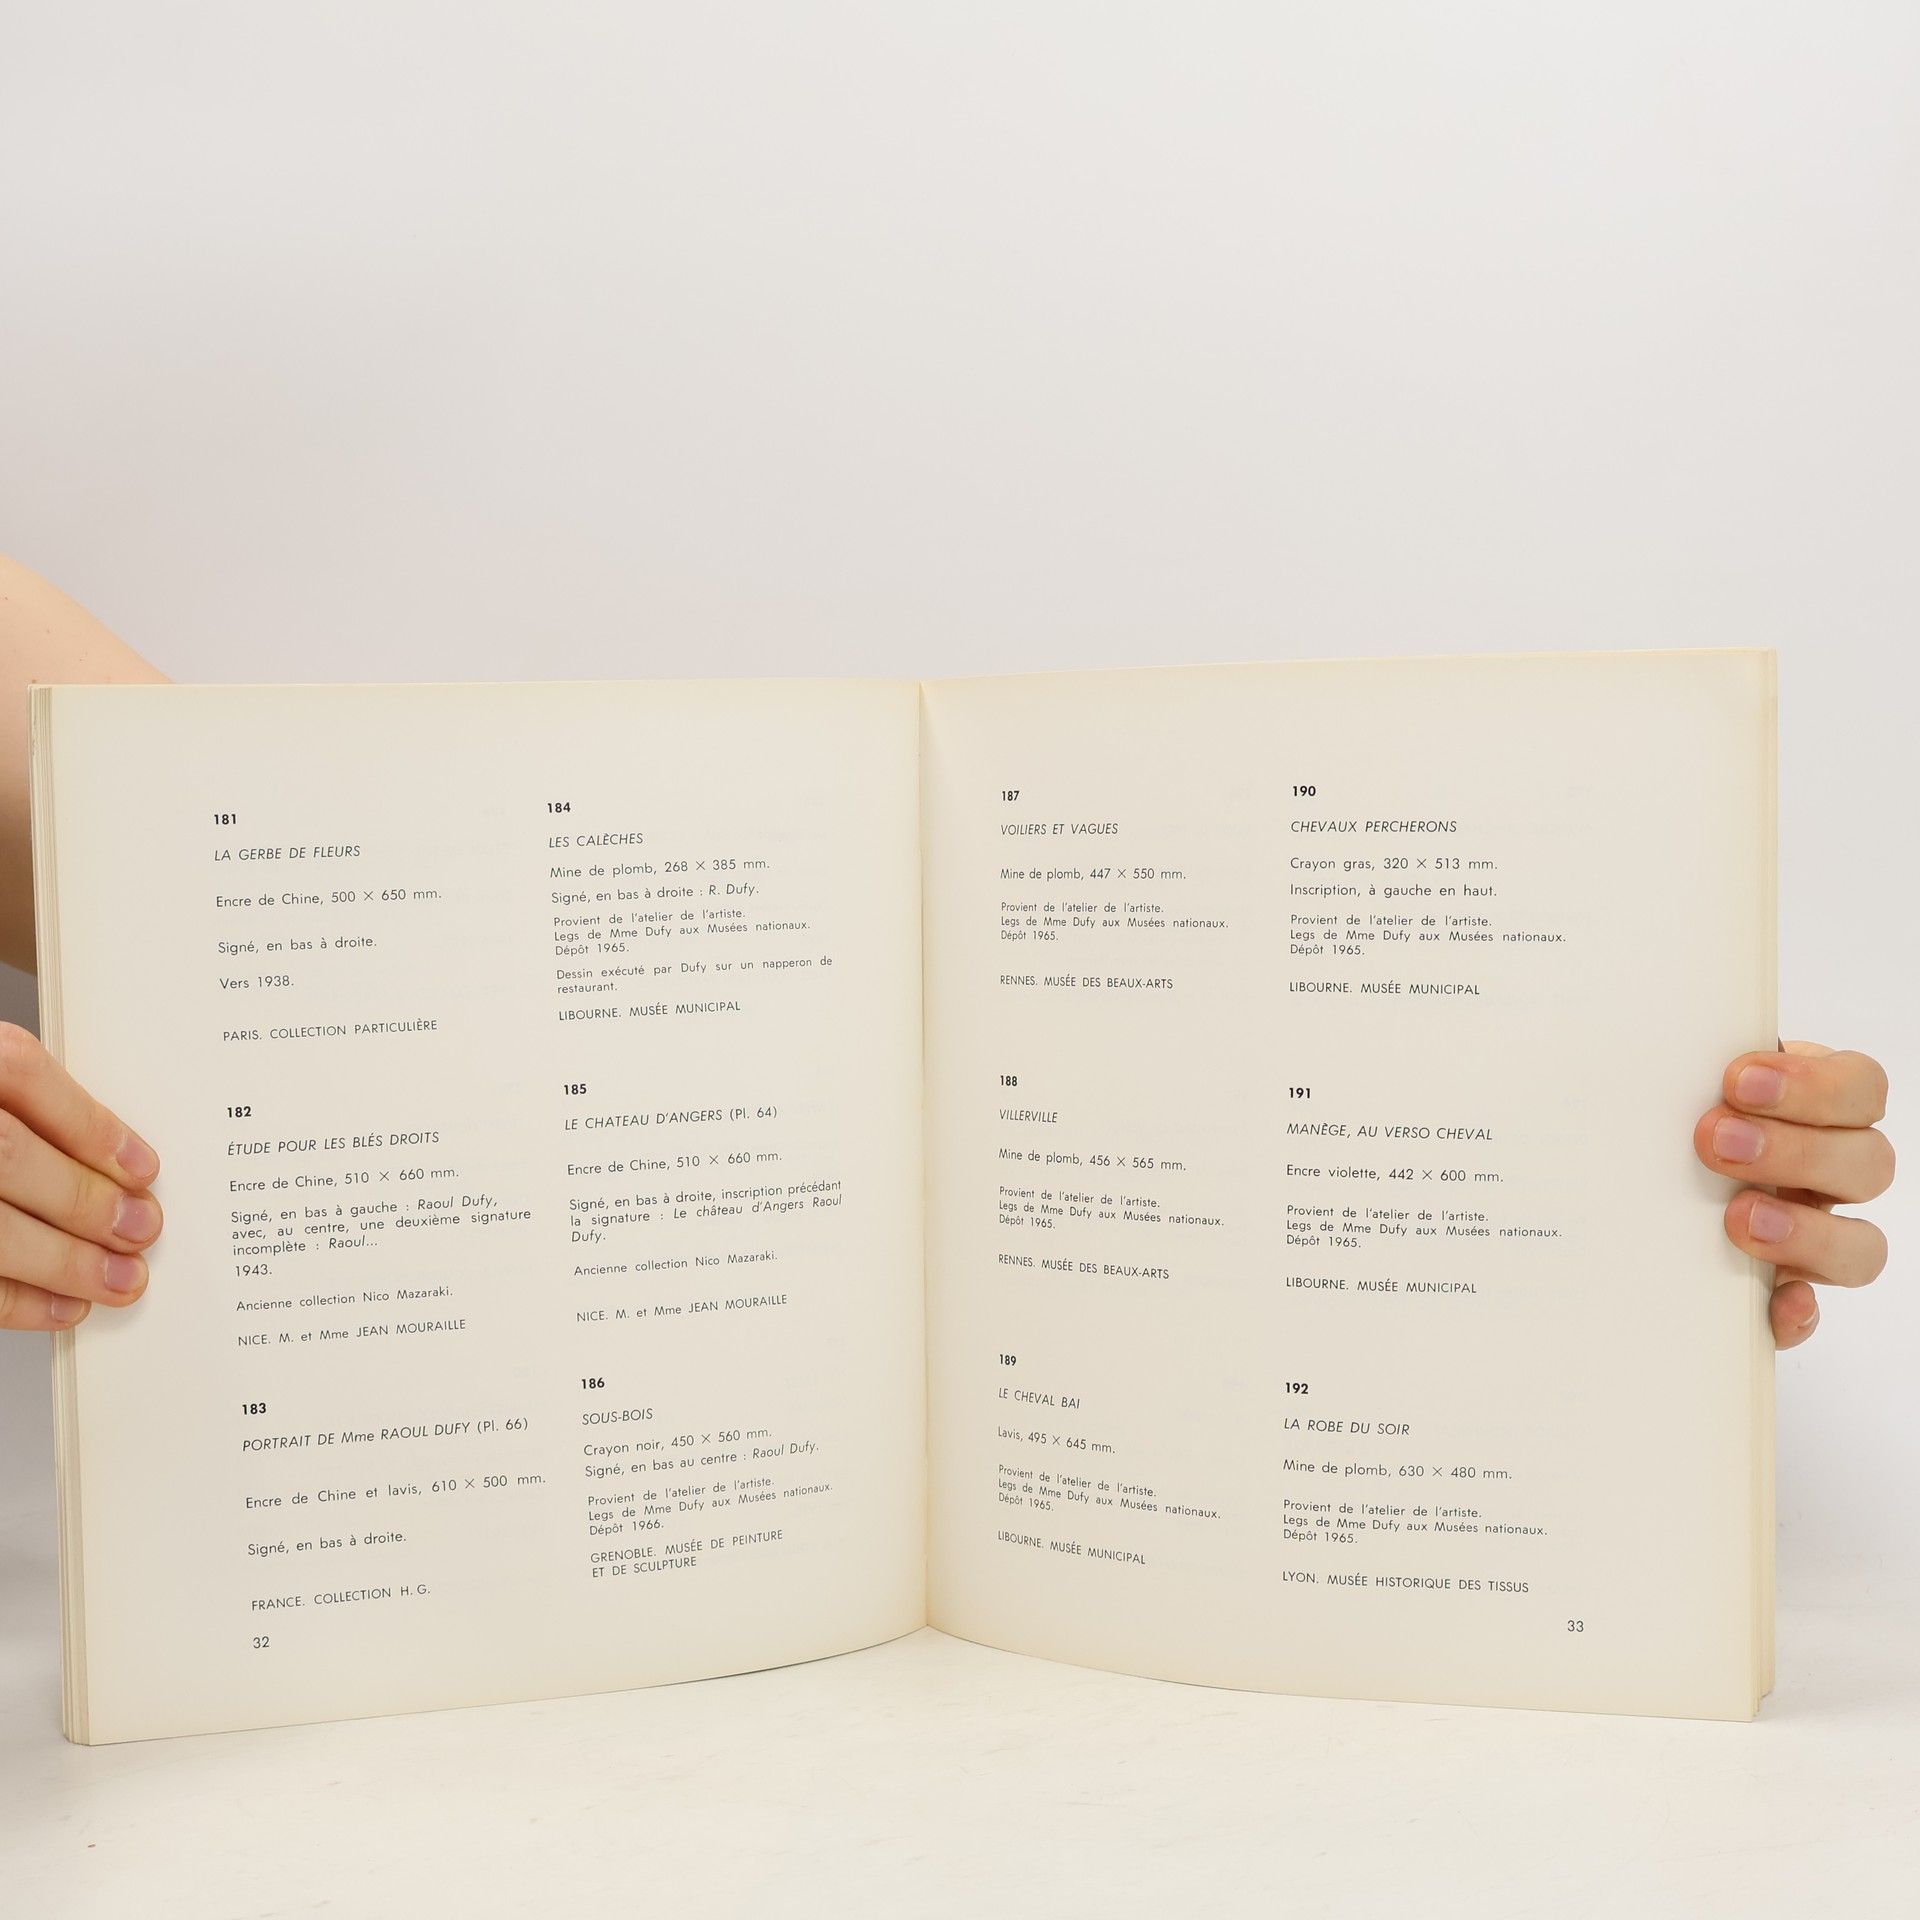 181
LA GERBE DE FLEURS
Encre de Chine, 500 × 650 mm.
Signé, en bas à droite.
Vers 1938.
PARIS. COLLECTION PARTICULIÈRE
182
ÉTUDE POUR LES BLÉS DROITS
Encre de Chine, 510 × 660 mm.
Signé, en bas à gauche : Raoul Dufy,
avec, au centre, une deuxième signature
incomplète : Raoul...
1943.
Ancienne collection Nico Mazaraki.
NICE. M. et Mme JEAN MOURAILLE
183
PORTRAIT DE Mme RAOUL DUFY (Pl. 66)
Encre de Chine et lavis, 610 × 500 mm.
Signé, en bas à droite.
FRANCE. COLLECTION H. G.
32
184
LES CALÈCHES
Mine de plomb, 268 × 385 mm.
Signé, en bas à droite : R. Dufy.
Provient de l'atelier de l'artiste.
Legs de Mme Dufy aux Musées nationaux.
Dépôt 1965.
Dessin exécuté par Dufy sur un napperon de
restaurant.
LIBOURNE. MUSÉE MUNICIPAL
185
LE CHATEAU D'ANGERS (Pl. 64)
Encre de Chine, 510 × 660 mm.
Signé, en bas à droite, inscription précédant
la signature : Le château d'Angers Raoul
Dufy.
Ancienne collection Nico Mazaraki.
NICE. M. et Mme JEAN MOURAILLE
186
SOUS-BOIS
Crayon noir, 450 × 560 mm.
Signé, en bas au centre : Raoul Dufy.
Provient de l'atelier de l'artiste.
Legs de Mme Dufy aux Musées nationaux.
Dépôt 1966.
GRENOBLE. MUSÉE DE PEINTURE
ET DE SCULPTURE
187
VOILIERS ET VAGUES
Mine de plomb, 447 × 550 mm.
Provient de l'atelier de l'artiste.
Legs de Mme Dufy aux Musées nationaux.
Dépôt 1965.
RENNES. MUSÉE DES BEAUX-ARTS
188
VILLERVILLE
Mine de plomb, 456 × 565 mm.
Provient de l'atelier de l'artiste.
Legs de Mme Dufy aux Musées nationaux.
Dépôt 1965.
RENNES. MUSÉE DES BEAUX-ARTS
189
LE CHEVAL BAI
Lavis, 495 × 645 mm.
Provient de l'atelier de l'artiste.
Legs de Mme Dufy aux Musées nationaux.
Dépôt 1965.
LIBOURNE. MUSÉE MUNICIPAL
190
CHEVAUX PERCHERONS
Crayon gras, 320 × 513 mm.
Inscription, à gauche en haut.
Provient de l'atelier de l'artiste.
Legs de Mme Dufy aux Musées nationaux.
Dépôt 1965.
LIBOURNE. MUSÉE MUNICIPAL
191
MANÈGE, AU VERSO CHEVAL
Encre violette, 442 × 600 mm.
Provient de l'atelier de l'artiste.
Legs de Mme Dufy aux Musées nationaux.
Dépôt 1965.
LIBOURNE. MUSÉE MUNICIPAL
192
LA ROBE DU SOIR
Mine de plomb, 630 × 480 mm.
Provient de l'atelier de l'artiste.
Legs de Mme Dufy aux Musées nationaux.
Dépôt 1965.
LYON. MUSÉE HISTORIQUE DES TISSUS
33